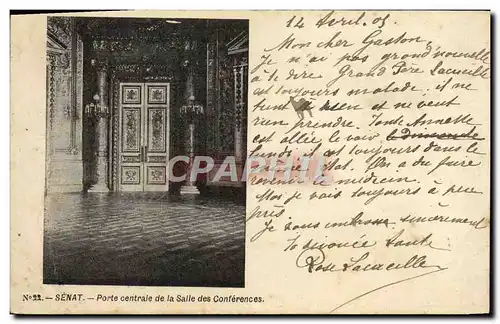 14 Avril. 05
Mon cher Gaston,
Je n'ai pas grand nouvelle
à te dire Grand Père Lacaille
est toujours malade; il ne
tient à rien et ne veut
rien prendre. Tante Annette
est allée le voir
il est toujours dans le
état. On a du faire
revenir le médecin.
Moi je vais toujours à peu
près.
Je vous embrasse sincèrement
Ta tante
Rose Lacaille
CPARAMA
N° 22. — SÉNAT. — Porte centrale de la Salle des Conférences.